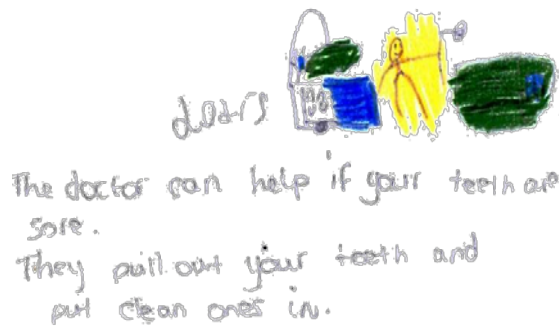 The doctor can help if your teeth are
sore.
They pull out your teeth and
put clean ones in.